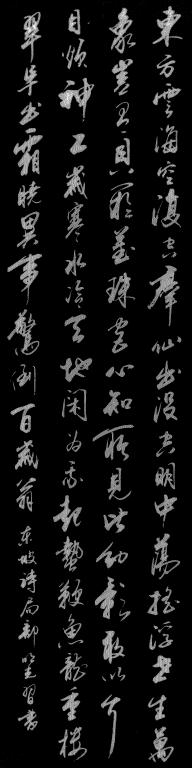 東方雲海空復空羣仙出没空明中蕩搖浮世生萬
象豈有貝闕藏珠宮心知所見皆幻影敢以耳
目煩神工歲寒水冷天地閉為我起蟄鞭魚龍重樓
翠阜出霜曉異事驚倒百歲翁 東坡詩局部 習書